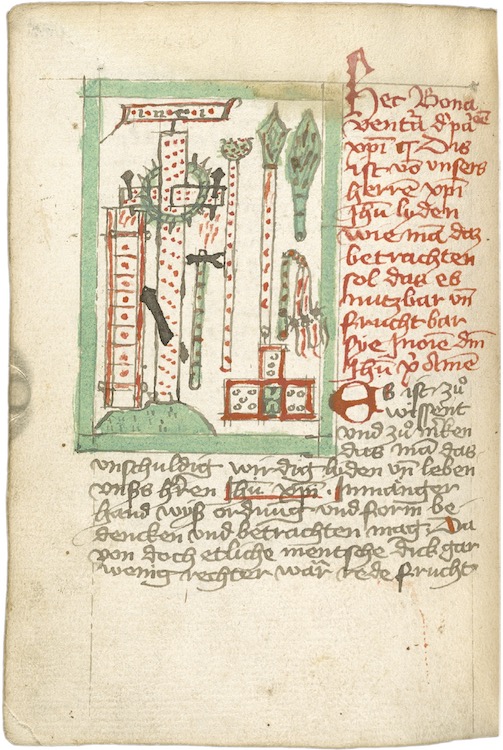 inri
Hec Bona
ventũ dʼpãcõe
xpi q Dis
ist võ vnsers
herre xpi
Jhũ lyden
wie mã daz
betrachten
sol das es
nutzbar vñ
fruchtbar
sye Inoie dm̃
Jhũ xp̃ Amē
Es ist zů
wissent
vnd zů mʼken
das mã das
vnschuldig wirdig liden vñ leben
vnss hʼren Jhũ xpi · Jn mãnger
hand wyss ordnung vnd form be
dencken vnd betrachten mag Da
von doch etliche mentsche dick gar
wenig rechter war̃ rede frucht